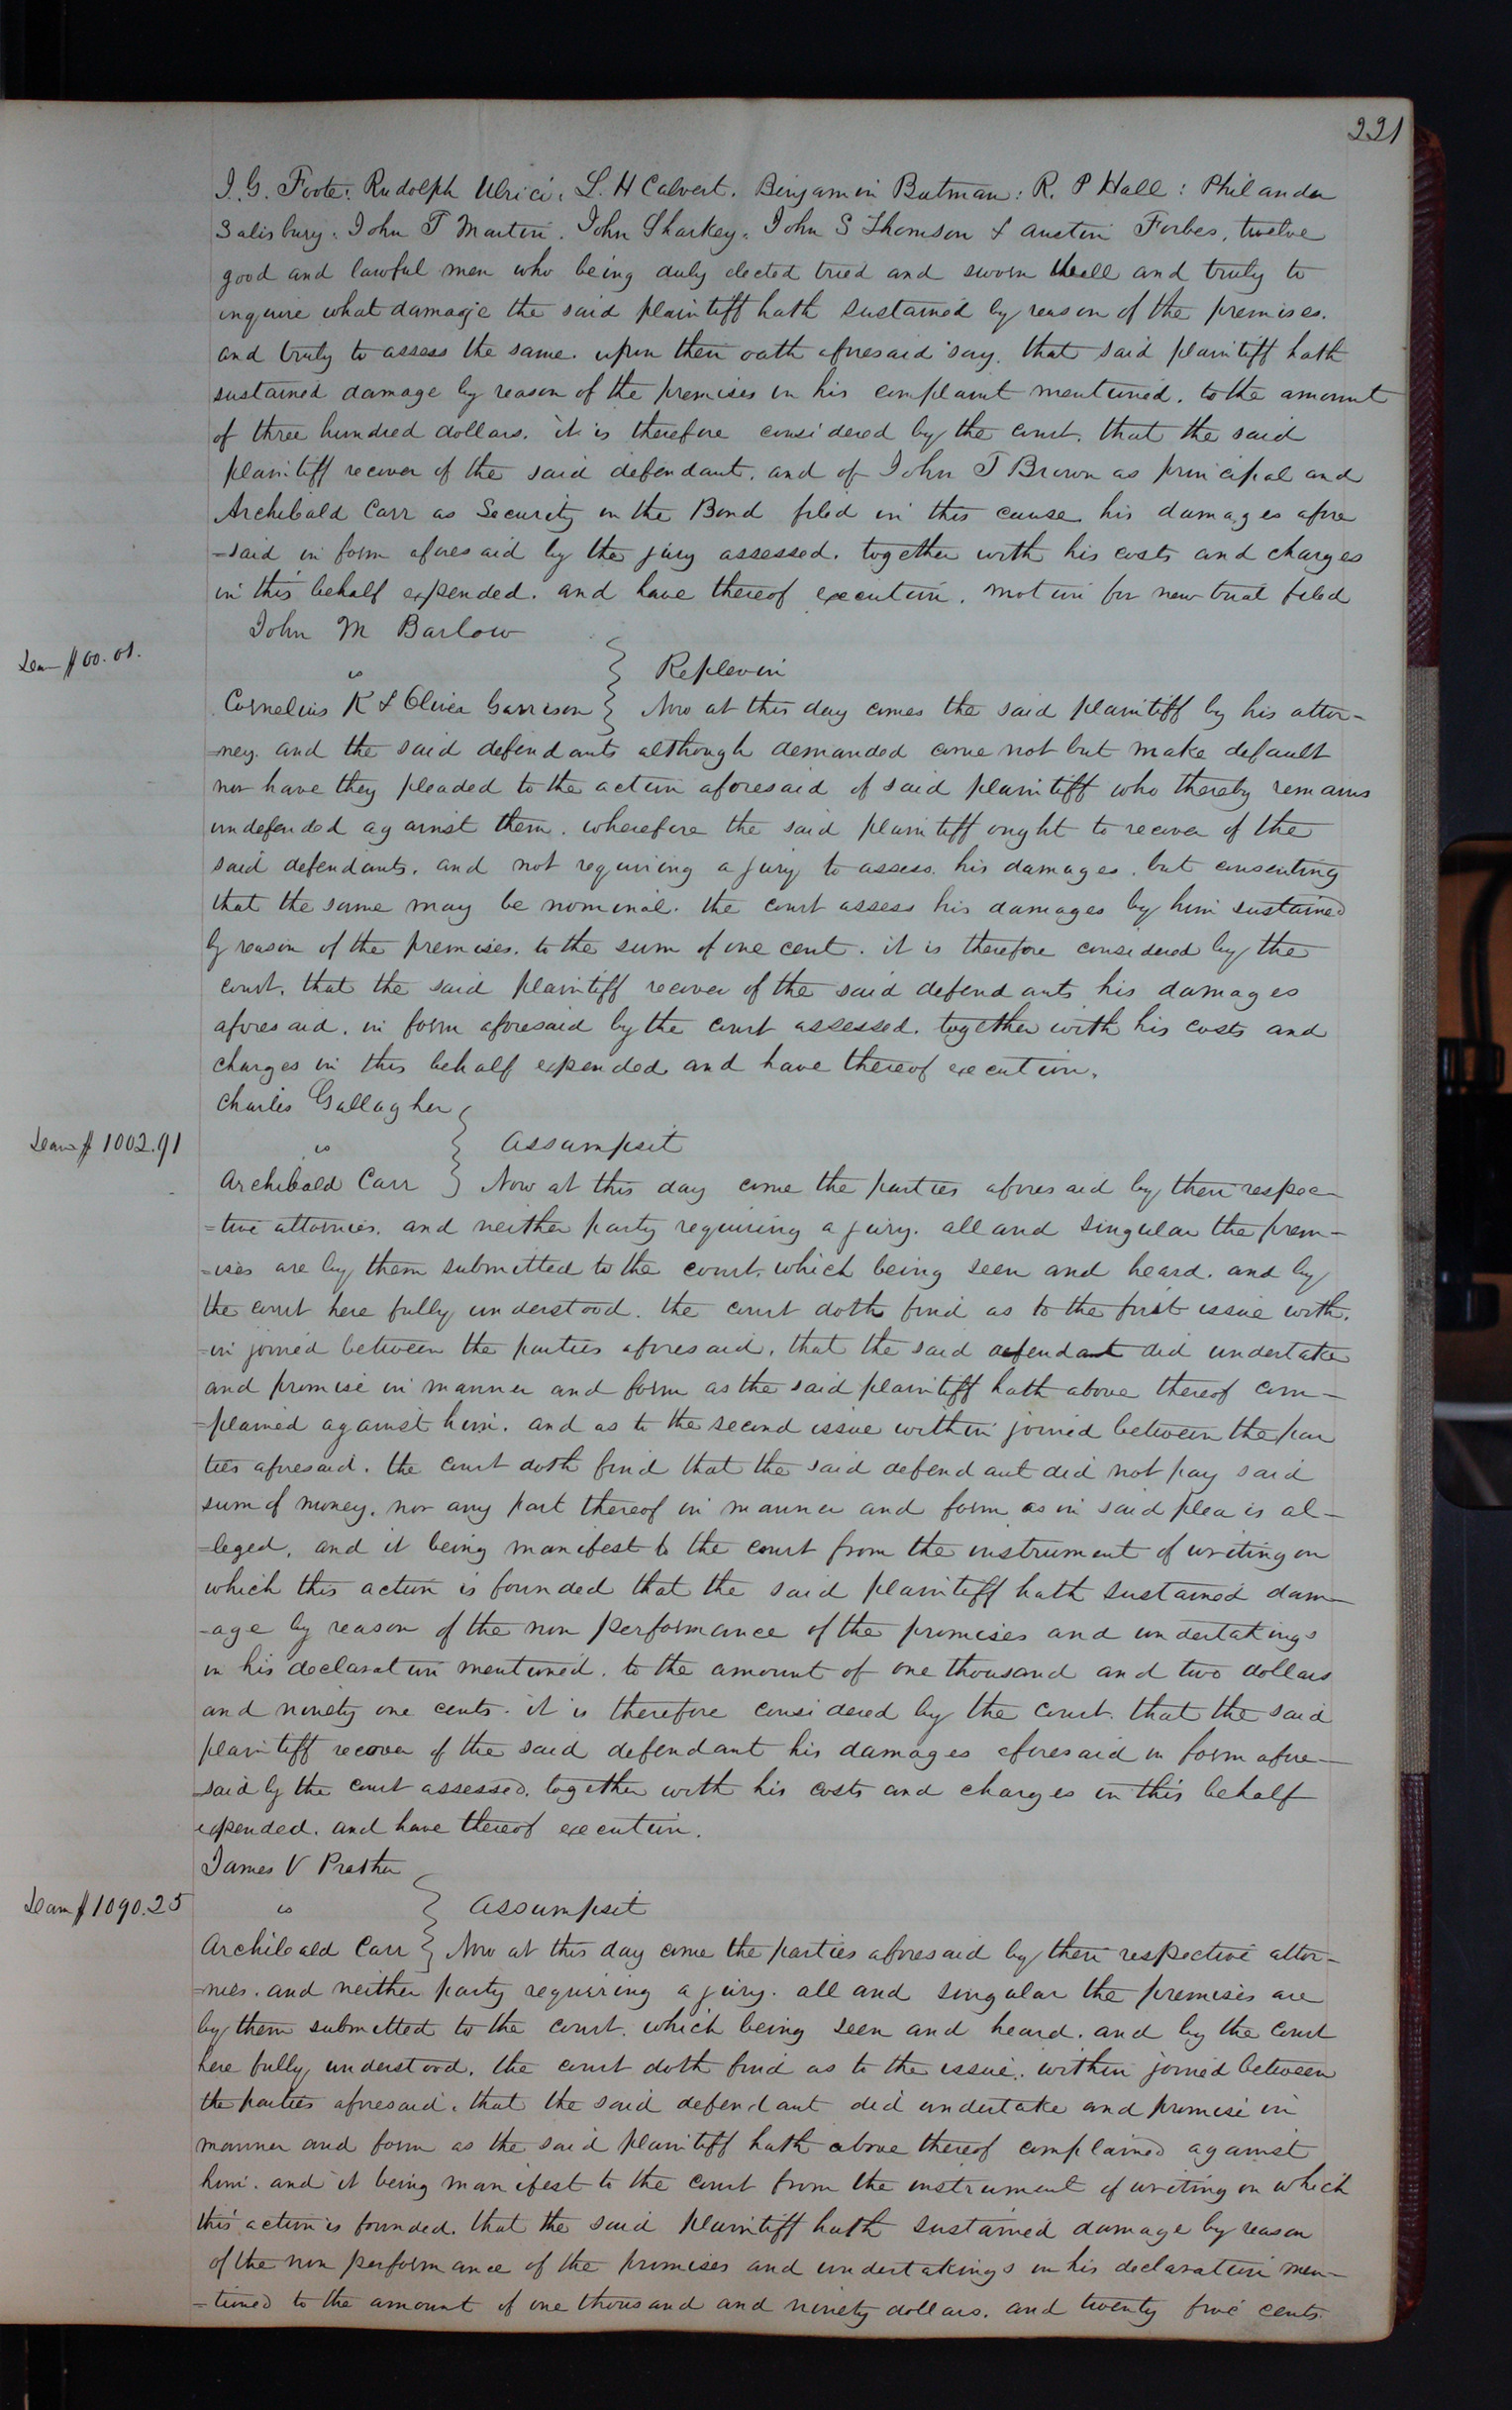 221
I. G. Foote: Rudolph Ulrici. L. H Calvert. Benjamin Butman: R. P Hall: Philander
Salisbury. John T Martin. John Sharkey. John S Thomson & Austin Forbes, twelve
good and lawful men who being duly elected tried and sworn well and truly to
inquire what damage the said plaintiff hath sustained by reason of the premises.
and truly to assess the same. upon their oath aforesaid say. that said plaintiff hath
sustained damage by reason of the premises in his complaint mentioned. to the amount
of three hundred dollars. it is therefore considered by the court. that the said
plaintiff recover of the said defendant. and of John T Brown as principal and
Archibald Carr as Security in the Bond filed in this cause his damages afore
=said in form aforesaid by the jury assessed. together with his costs and charges
in this behalf expended. and have thereof execution. motion for new trial filed
John M Barlow
Dam $00.01.
vs } Replevin
Cornelius K & Oliver Garrison } Now at this day comes the said plaintiff by his attor-
=ney. and the said defendants although demanded come not but make default
nor have they pleaded to the action aforesaid of said plaintiff who thereby remains
undefended against them. wherefore the said plaintiff ought to recover of the
said defendants. and not requiring a jury to assess his damages. but consenting
that the same may be nominal. the court assess his damages by him sustained
by reason of the premises. to the sum of one cent. it is therefore considered by the
court. that the said plaintiff recover of the said defendants his damages
aforesaid. in form aforesaid by the court assessed. together with his costs and
charges in this behalf expended and have thereof execution.
Charles Gallagher
Dam $1002.91
vs } Assumpsit
Archibald Carr } Now at this day come the parties aforesaid by their respec-
=tive attornies. and neither party requiring a jury. all and singular the prem-
=ises are by them submitted to the court. which being seen and heard. and by
the court here fully understood. the court doth find as to the first issue with.
=in joined between the parties aforesaid. that the said defendant did undertake
and promise in manner and form as the said plaintiff hath above thereof com-
=plained against him. and as to the second issue within joined between the par
ties aforesaid. the court doth find that the said defendant did not pay said
sum of money. nor any part thereof in manner and form as in said plea is al-
=leged. and it being manifest to the court from the instrument of writing on
which this action is founded that the said plaintiff hath sustained dam-
-age by reason of the non performance of the promises and undertakings
in his declaration mentioned. to the amount of one thousand and two dollars
and ninety one cents. it is therefore considered by the Court. that the said
plaintiff recover of the said defendant his damages aforesaid in form afore-
=said by the court assessed. together with his costs and charges in this behalf
expended. and have thereof execution.
James V Prather
Dam $1090.25
vs } Assumpsit
Archibald Carr } Now at this day come the parties aforesaid by their respective attor-
=nies. and neither party requiring a jury. all and singular the premises are
by them submitted to the court. which being seen and heard. and by the Court
here fully understood. the court doth find as to the issue. within joined between
the parties aforesaid. that the said defendant did undertake and promise in
manner and form as the said plaintiff hath above thereof complained against
him. and it being manifest to the court from the instrument of writing on which
this action is founded. that the said plaintiff hath sustained damage by reason
of the non performance of the promises and undertakings in his declaration men-
=tioned to the amount of one thousand and ninety dollars. and twenty five cents.